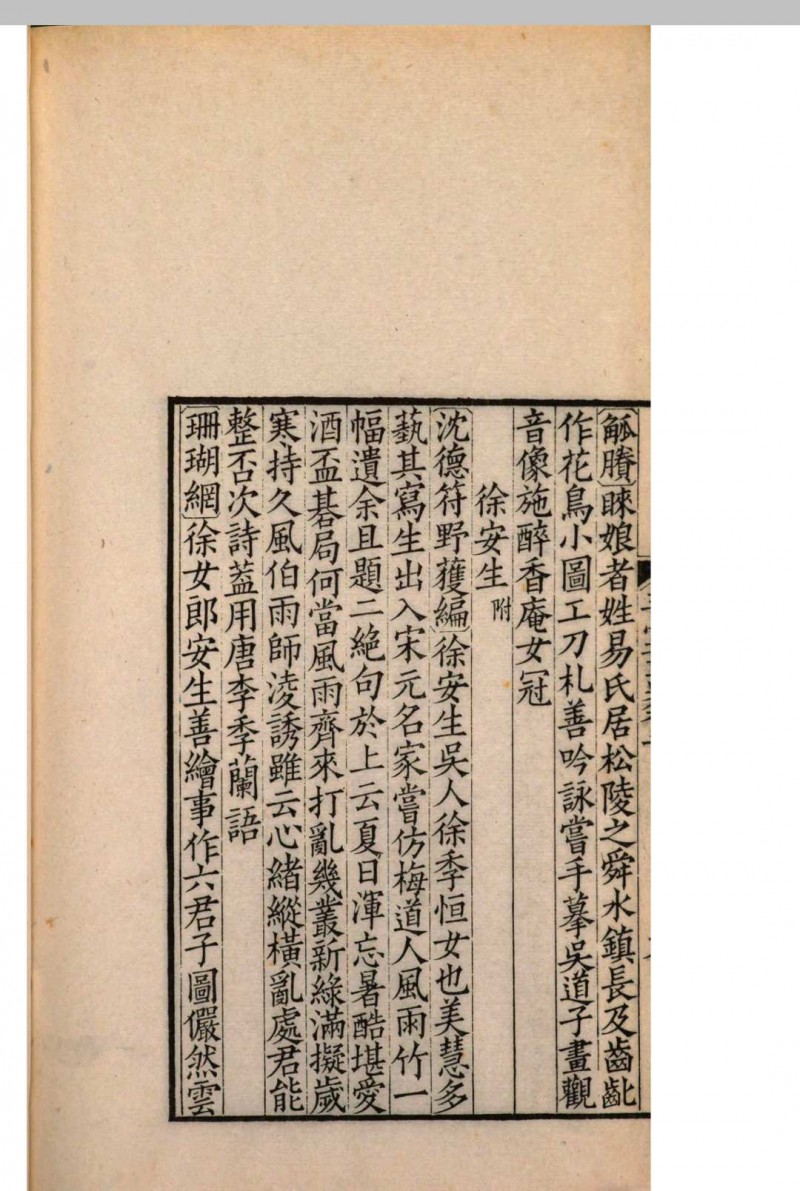 觚賸睞娘者姓易氏居松陵之舜水鎮長及齒齔
作花鳥小圖工刀札善吟詠嘗手摹吳道子畫觀
音像施醉香庵女冠
徐安生附
沈德符野蒦編徐安生吳人徐季恒女也美慧多
藝其寫生出入宋元名家嘗仿梅道人風雨竹一
幅遺余且題二絕句於上云夏日渾忘暑酷堪愛
酒盃棊局何當風雨齊來打亂幾叢新綠滿擬歲
寒持久風伯雨師淩誘雖云心緒縱橫亂處君能
整否次詩蓋用唐李季蘭語
珊瑚網徐女郎安生善繪事作六君子圖儼然雲